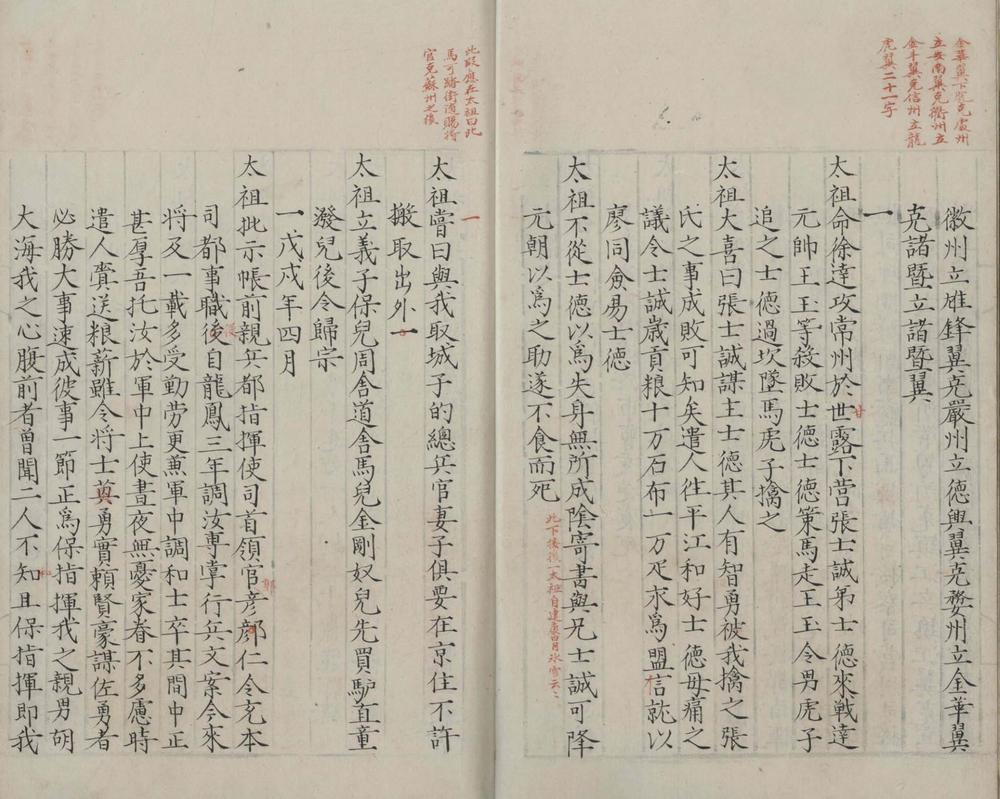 金華翼下脫克處州
立安南翼克衢州立
金斗翼克信州立龍
虎翼二十一字
徽州立雄鋒翼克嚴州立德興翼克婺州立金華翼
克諸暨立諸暨翼
一
太祖命徐達攻常州於世露下营張士誠弟士德來戰達
甘
元帥王玉等殺敗士德士德策馬走王玉令男虎子
追之士德過坎墜馬虎子擒之
太祖大喜曰張士誠謀主士德其人有智勇被我擒之張
氏之事成敗可知矣遣人徃平江和好士德母痛之
議令士誠歲貢粮十万石布一万疋永爲盟信就以
廖同僉易士德
太祖不從士德以爲失身無所成陰寄書與兄士誠可降
元朝以爲之助遂不食而死
此下接後一太祖自建康四月氷雪云云
此叚應在太祖曰此
馬可踏街道賜將
官克蘇州之後
一
太祖嘗曰與我取城子的總兵官妻子俱要在京住不許
搬取出外一
太祖立義子保兒周舍道舍馬兒金剛奴兒先買驴直童
潑兒後令歸宗
一戊戌年四月
太祖批示帳前親兵都指揮使司首領官彦顔仁令充本
郭
司都事職後自龍鳳三年調汝專掌行兵文案今來
將及一載多受勤劳更兼軍中調和士卒其間中正
甚厚吾托汝於軍中上使晝夜無憂家眷不多慮時
遣人賫送粮薪雖令將士奠勇實賴賢豪謀佐勇者
必勝大事速成彼事一節正爲保指揮我之親男胡
大海我之心腹前者曾聞二人不知且保指揮即我
和